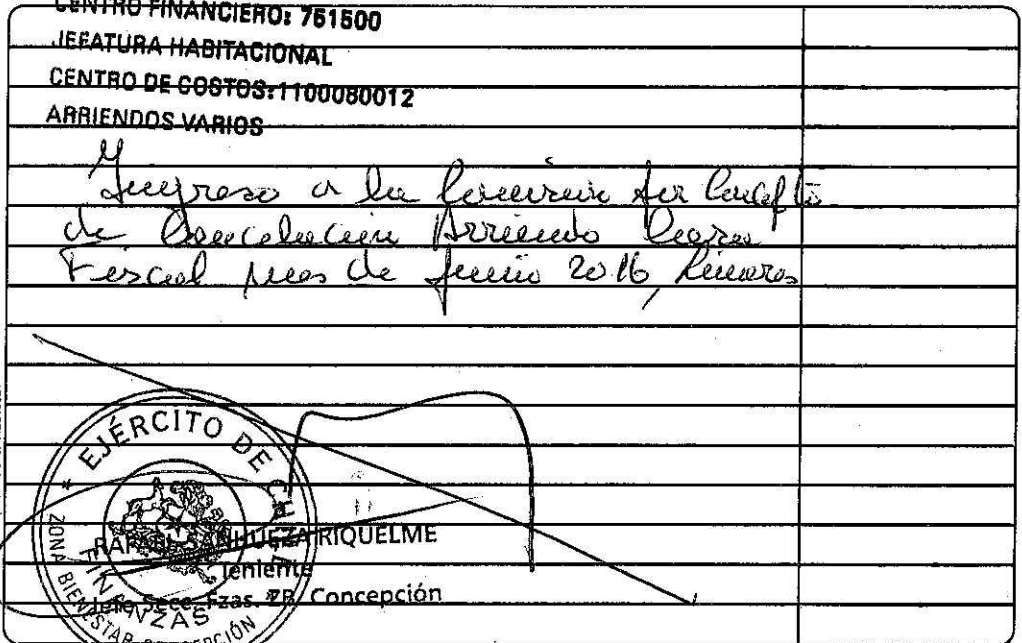 CENTRO FINANCIERO: 761500
JEFATURA HABITACIONAL
CENTRO DE COSTOS:1100080012
ARRIENDOS VARIOS
Ingreso a la por Concepto
de Cancelación Arriendo Casa
Fiscal mes de Junio 2016, Linares
EJÉRCITO DE CHILE
FINANZAS
ZONA BIENESTAR CONCEPCIÓN
RAFAEL SANHUEZA RIQUELME
Teniente
Jefe Secc. Fzas. ZB. Concepción